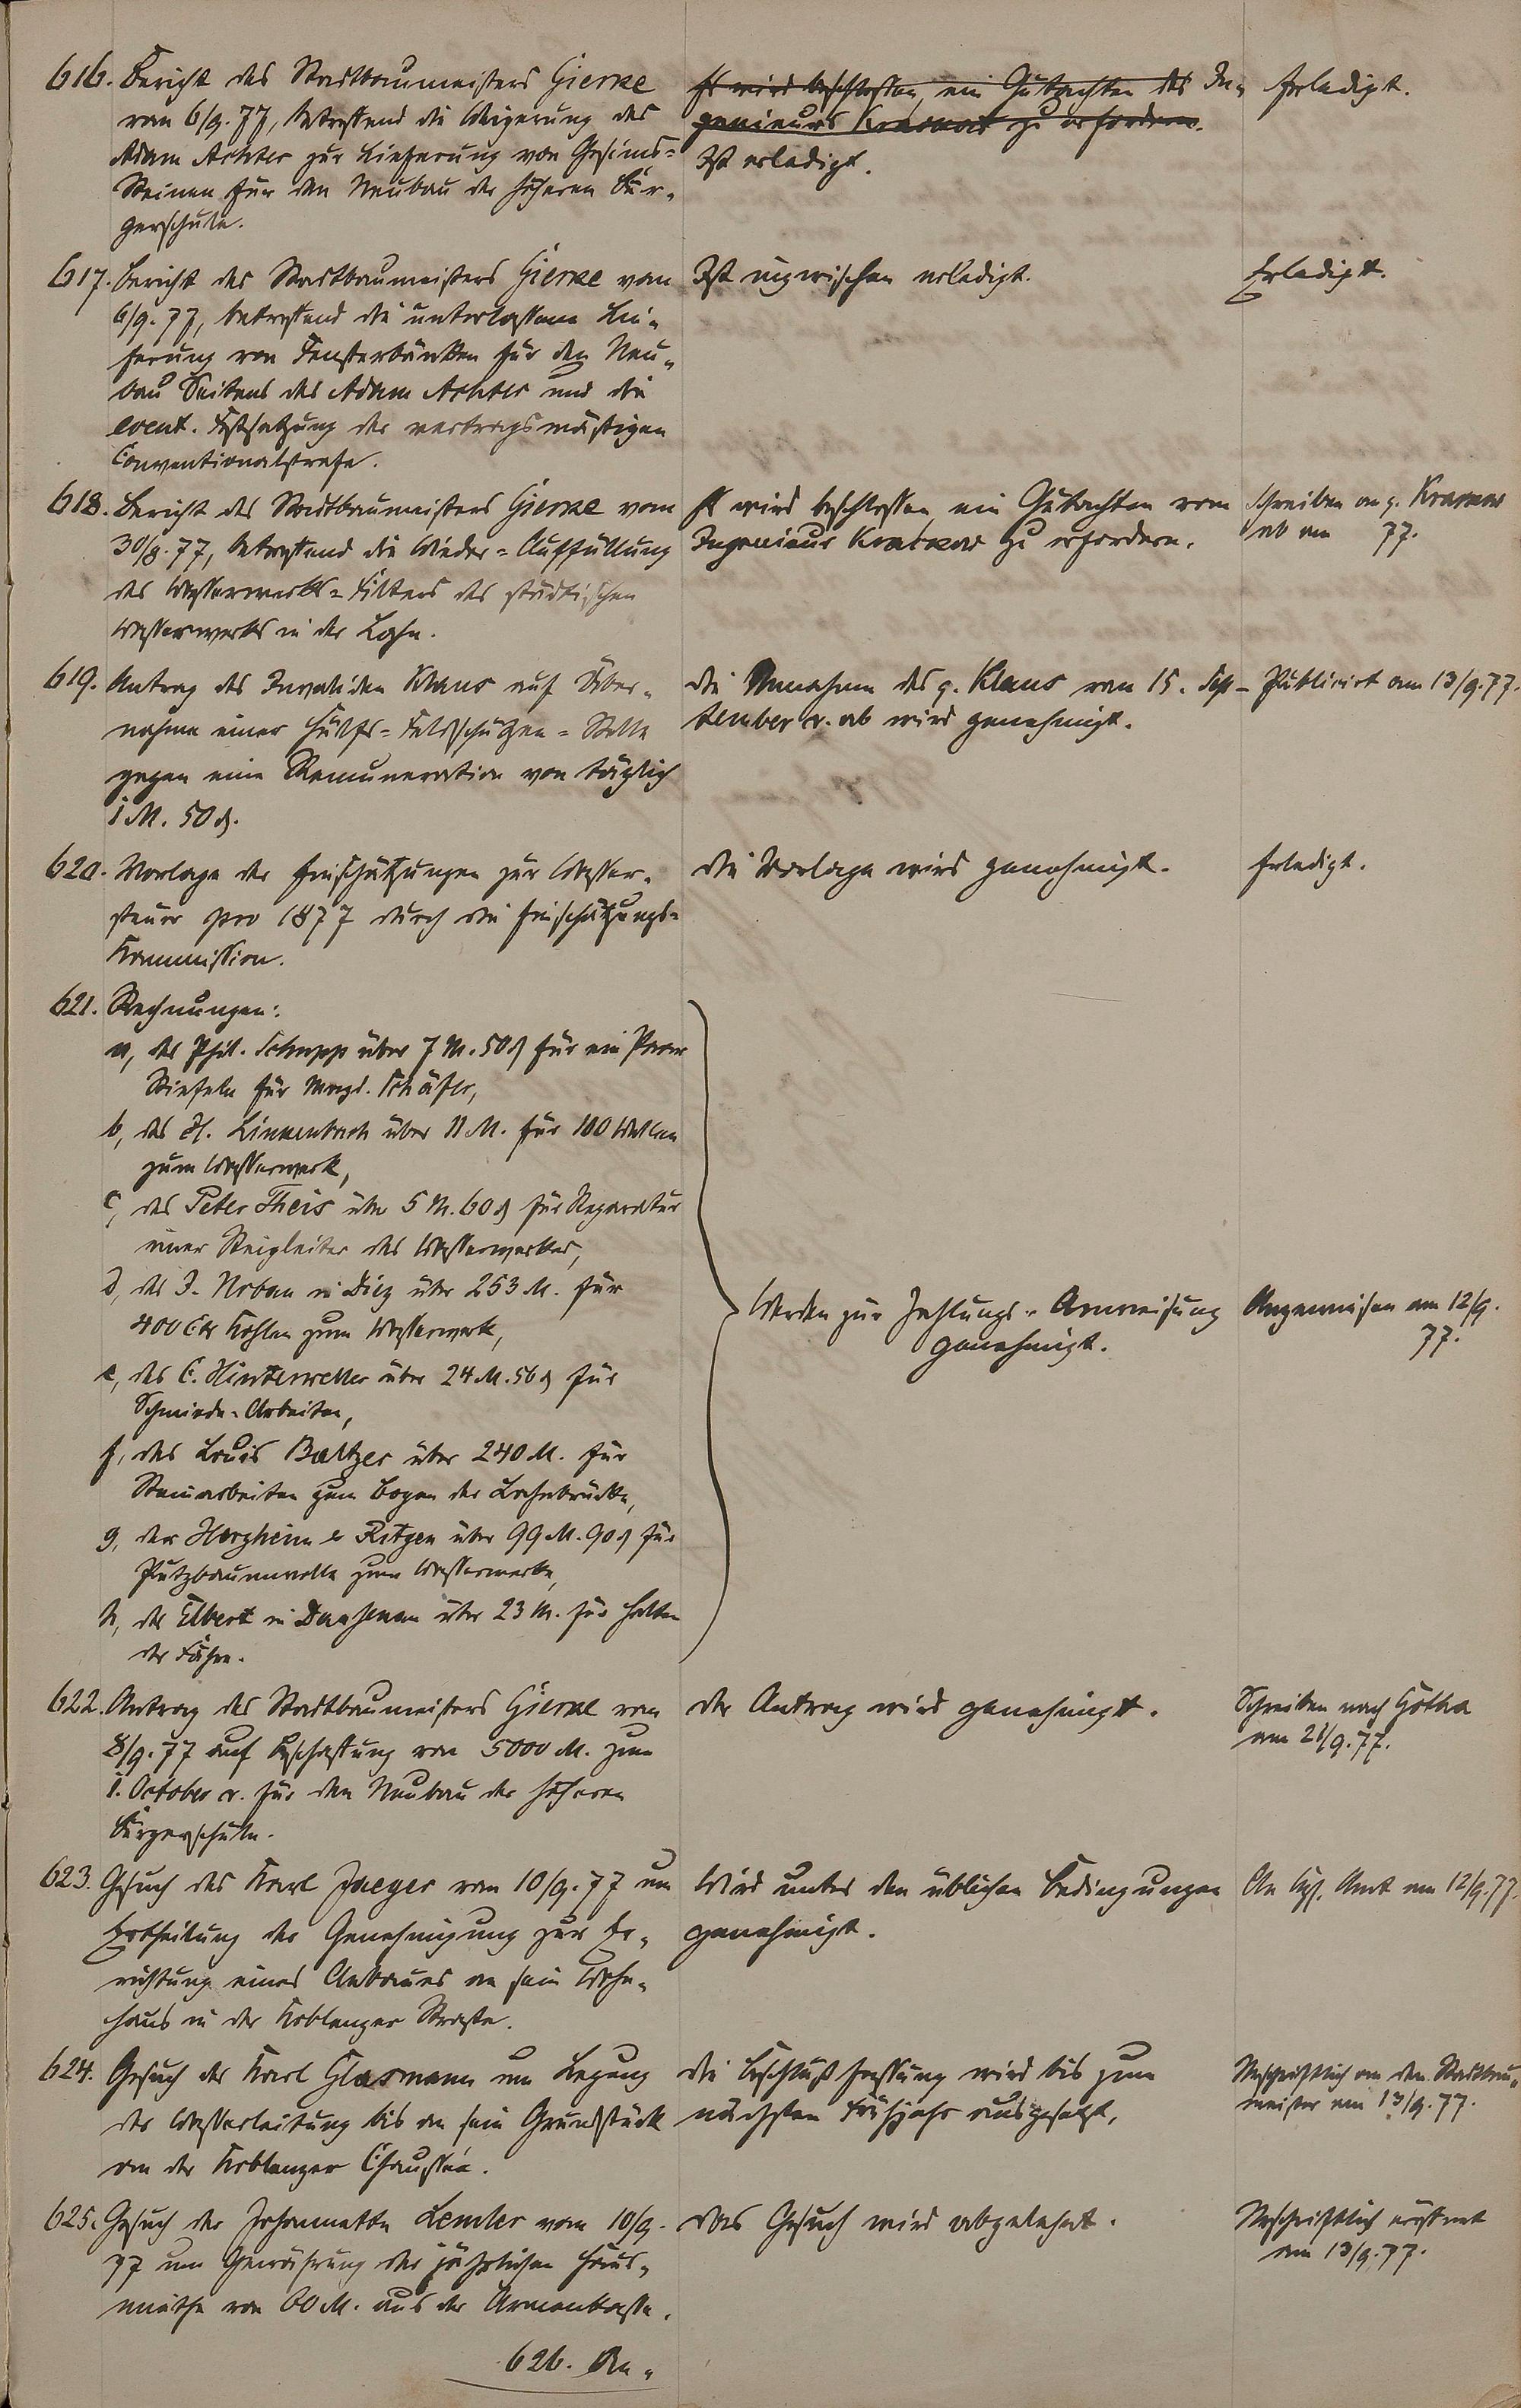 616. Bericht des Stadtbaumeisters Gierke
vom 6/9. 77, betreffend die Weigerung des
Adam Achter zur Lieferung von Gesims-
Steinen für den Neubau der höheren Bür-
gerschule.
Es wird beschlossen, ein Gutachten des In-
genieurs Kraskow zu erfordern.
Ist erledigt.
Erledigt.
617. Bericht des Stadtbaumeisters Gierke vom
6/9. 77, betreffend die unterlassene Lie-
ferung von Fensterbänken für den Neu-
bau Seitens des Adam Achter und die
event. Festsetzung der vertragsmäßigen
Conventionalstrafe.
Ist inzwischen erledigt.
Erledigt.
618. Bericht des Stadtbaumeisters Gierke vom
30/8. 77, betreffend die Wieder-Auffüllung
des Wasserwerks-Filters des städtischen
Wasserwerks in der Lahn.
Es wird beschlossen, ein Gutachten vom
Ingenieur Kraskow zu erfordern.
Schreiben an p. Kraskow
ab am 77.
619. Antrag des Invaliden Klaus auf Über-
nahme einer Hülfs-Feldschützen-Stelle
gegen eine Remuneration von täglich
1 M. 50 ₰.
Die Annahme des p. Klaus vom 15. Sep-
tember cr. ab wird genehmigt.
Publicirt am 13/9. 77.
620. Vorlage der Einschätzungen zur Wasser-
steuer pro 1877 durch die Einschätzungs-
Kommission.
Die Vorlage wird genehmigt.
Erledigt.
621. Rechnungen:
a, des Phil. Schupp über 7 M. 50 ₰ für ein Paar
Stiefeln für Magd. Schäfer,
b, des H. Linkenbach über 11 M. für 100 Wellen
zum Wasserwerk,
c, des Peter Theis über 5 M. 60 ₰ für Reparatur
einer Steigleiter des Wasserwerkes,
d, des J. Noban in Diez über 253 M. für
400 Ctr Kohlen zum Wasserwerk,
e, des C. Hinterweller über 24 M. 56 ₰ für
Schmiede-Arbeiten,
f, des Louis Baltzer über 240 M. für
Steinarbeiten zum Bogen der Lahnbrücke,
g, der Herzheim & Ritgen über 99 M. 90 ₰ für
Putzbaumwolle zum Wasserwerke,
h, des Elbert in Dausenau über 23 M. für Halten
der Fähre.
Werden zur Zahlungs-Anweisung
genehmigt.
Angewiesen am 12/9.
77.
622. Antrag des Stadtbaumeisters Gierke vom
8/9. 77 auf Beschaffung von 5000 M. zum
1. October cr. für den Neubau der höheren
Bürgerschule.
Der Antrag wird genehmigt.
Schreiben nach Gotha
am 21/9. 77.
623. Gesuch des Karl Jaeger vom 10/9. 77 um
Ertheilung der Genehmigung zur Er-
richtung eines Anbaues an sein Wohn-
haus in der Koblenzer Straße.
Wird unter den üblichen Bedingungen
genehmigt.
An Kgl. Amt am 12/9. 77.
624. Gesuch des Karl Glasmann um Legung
der Wasserleitung bis an sein Grundstück
an der Koblenzer Chaussée.
Die Beschlußfassung wird bis zum
nächsten Frühjahr ausgesetzt.
Abschriftlich an den Stadtbau-
meister am 13/9. 77.
625. Gesuch der Johannette Lemler vom 10/9.
77 um Gewährung der jährlichen Haus-
miethe von 60 M. aus der Armenkasse.
Das Gesuch wird abgelehnt.
Abschriftlich eröffnet
am 13/9. 77.
626. An-